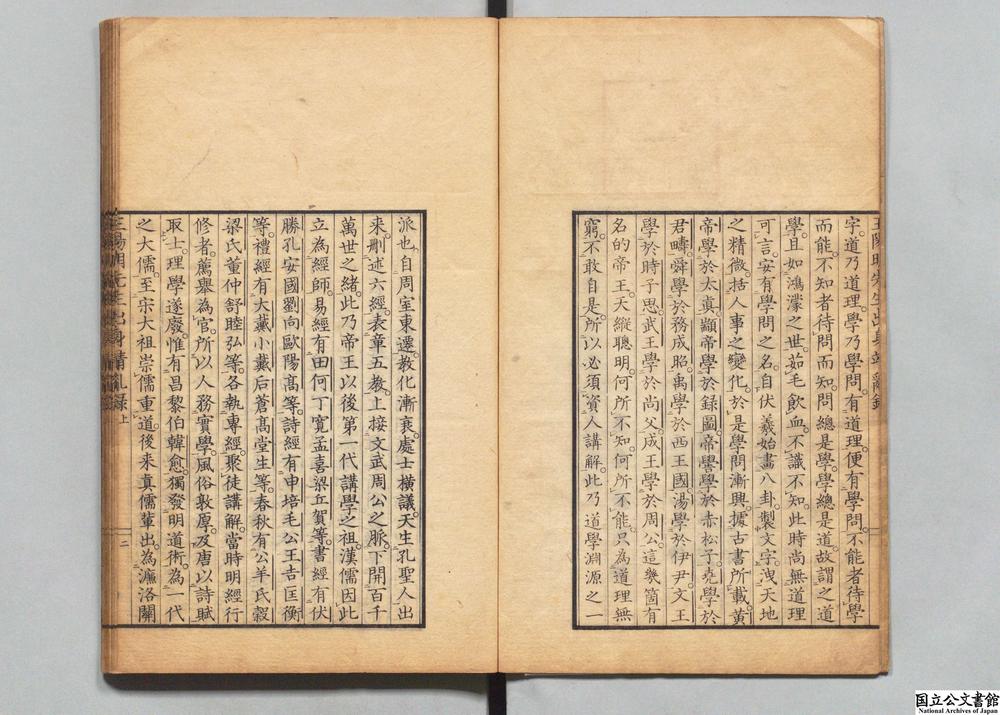 王陽明先生出身靖亂錄
字。道乃道理。學乃學問。有道理。便有學問。不能者待學
而能。不知者待問而知。問總是學。學總是道。故謂之道
學。且如鴻濛之世。茹毛飲血。不識不知。此時尚無道理
可言。安有學問之名。自伏羲始畫八卦。製文字。洩天地
之精微。括人事之變化。於是學問漸興。據古書所載。黃
帝學於太真。顓帝學於録圖。帝嚳學於赤松子。堯學於
君疇。舜學於務成昭。禹學於西王國。湯學於伊尹。文王
學於時子思。武王學於尚父。成王學於周公。這幾箇有
名的帝王。天縱聰明。何所不知。何所不能。只為道理無
窮。不敢自是。所以必須資人講解。此乃道學淵源之一
派也。自周室東遷。教化漸衰。處士橫議。天生孔聖人出
來。刪述六經。表章五教。上接文武周公之脈。下開百千
萬世之緒。此乃帝王以後第一代講學之祖。漢儒因此
立為經師。易經有田何丁寬孟喜梁丘賀等。書經有伏
勝孔安國劉向歐陽高等。詩經有申培毛公王吉匡衡
等。禮經有大戴小戴后蒼高堂生等。春秋有公羊氏穀
梁氏董仲舒眭弘等。各執專經。聚徒講解。當時明經行
修者。薦舉為官。所以人務實學。風俗敦厚。及唐以詩賦
取士。理學遂廢。惟有昌黎伯韓愈。獨發明道術。為一代
之大儒。至宋大祖崇儒重道。後來真儒輩出。為濂洛關
王陽明先生出身靖亂録 上
二
国立公文書館
National Archives of Japan